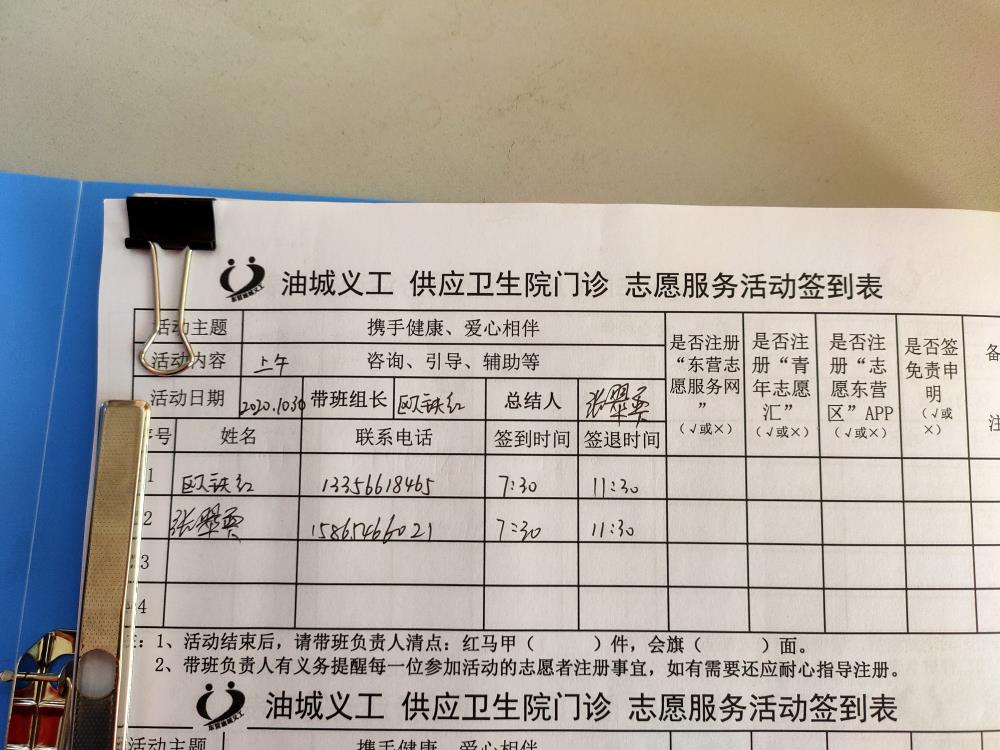 油城义工 供应卫生院门诊 志愿服务活动签到表
东营油城义工
活动主题 携手健康、爱心相伴 是否注册“东营志愿服务网” (√或×) 是否注册“青年志愿汇” (√或×) 是否注册“志愿东营区”APP (√或×) 是否签免责申明 (√或×) 备注
活动内容 上午 咨询、引导、辅助等
活动日期 2020.1030 带班组长 欧铁红 总结人 张翠英
序号 姓名 联系电话 签到时间 签退时间
1 欧铁红 13356618465 7:30 11:30
2 张翠英 15865466021 7:30 11:30
3
4
注：1、活动结束后，请带班负责人清点：红马甲（ ）件，会旗（ ）面。
2、带班负责人有义务提醒每一位参加活动的志愿者注册事宜，如有需要还应耐心指导注册。
油城义工 供应卫生院门诊 志愿服务活动签到表
东营油城义工
活动主题 携手健康、爱心相伴